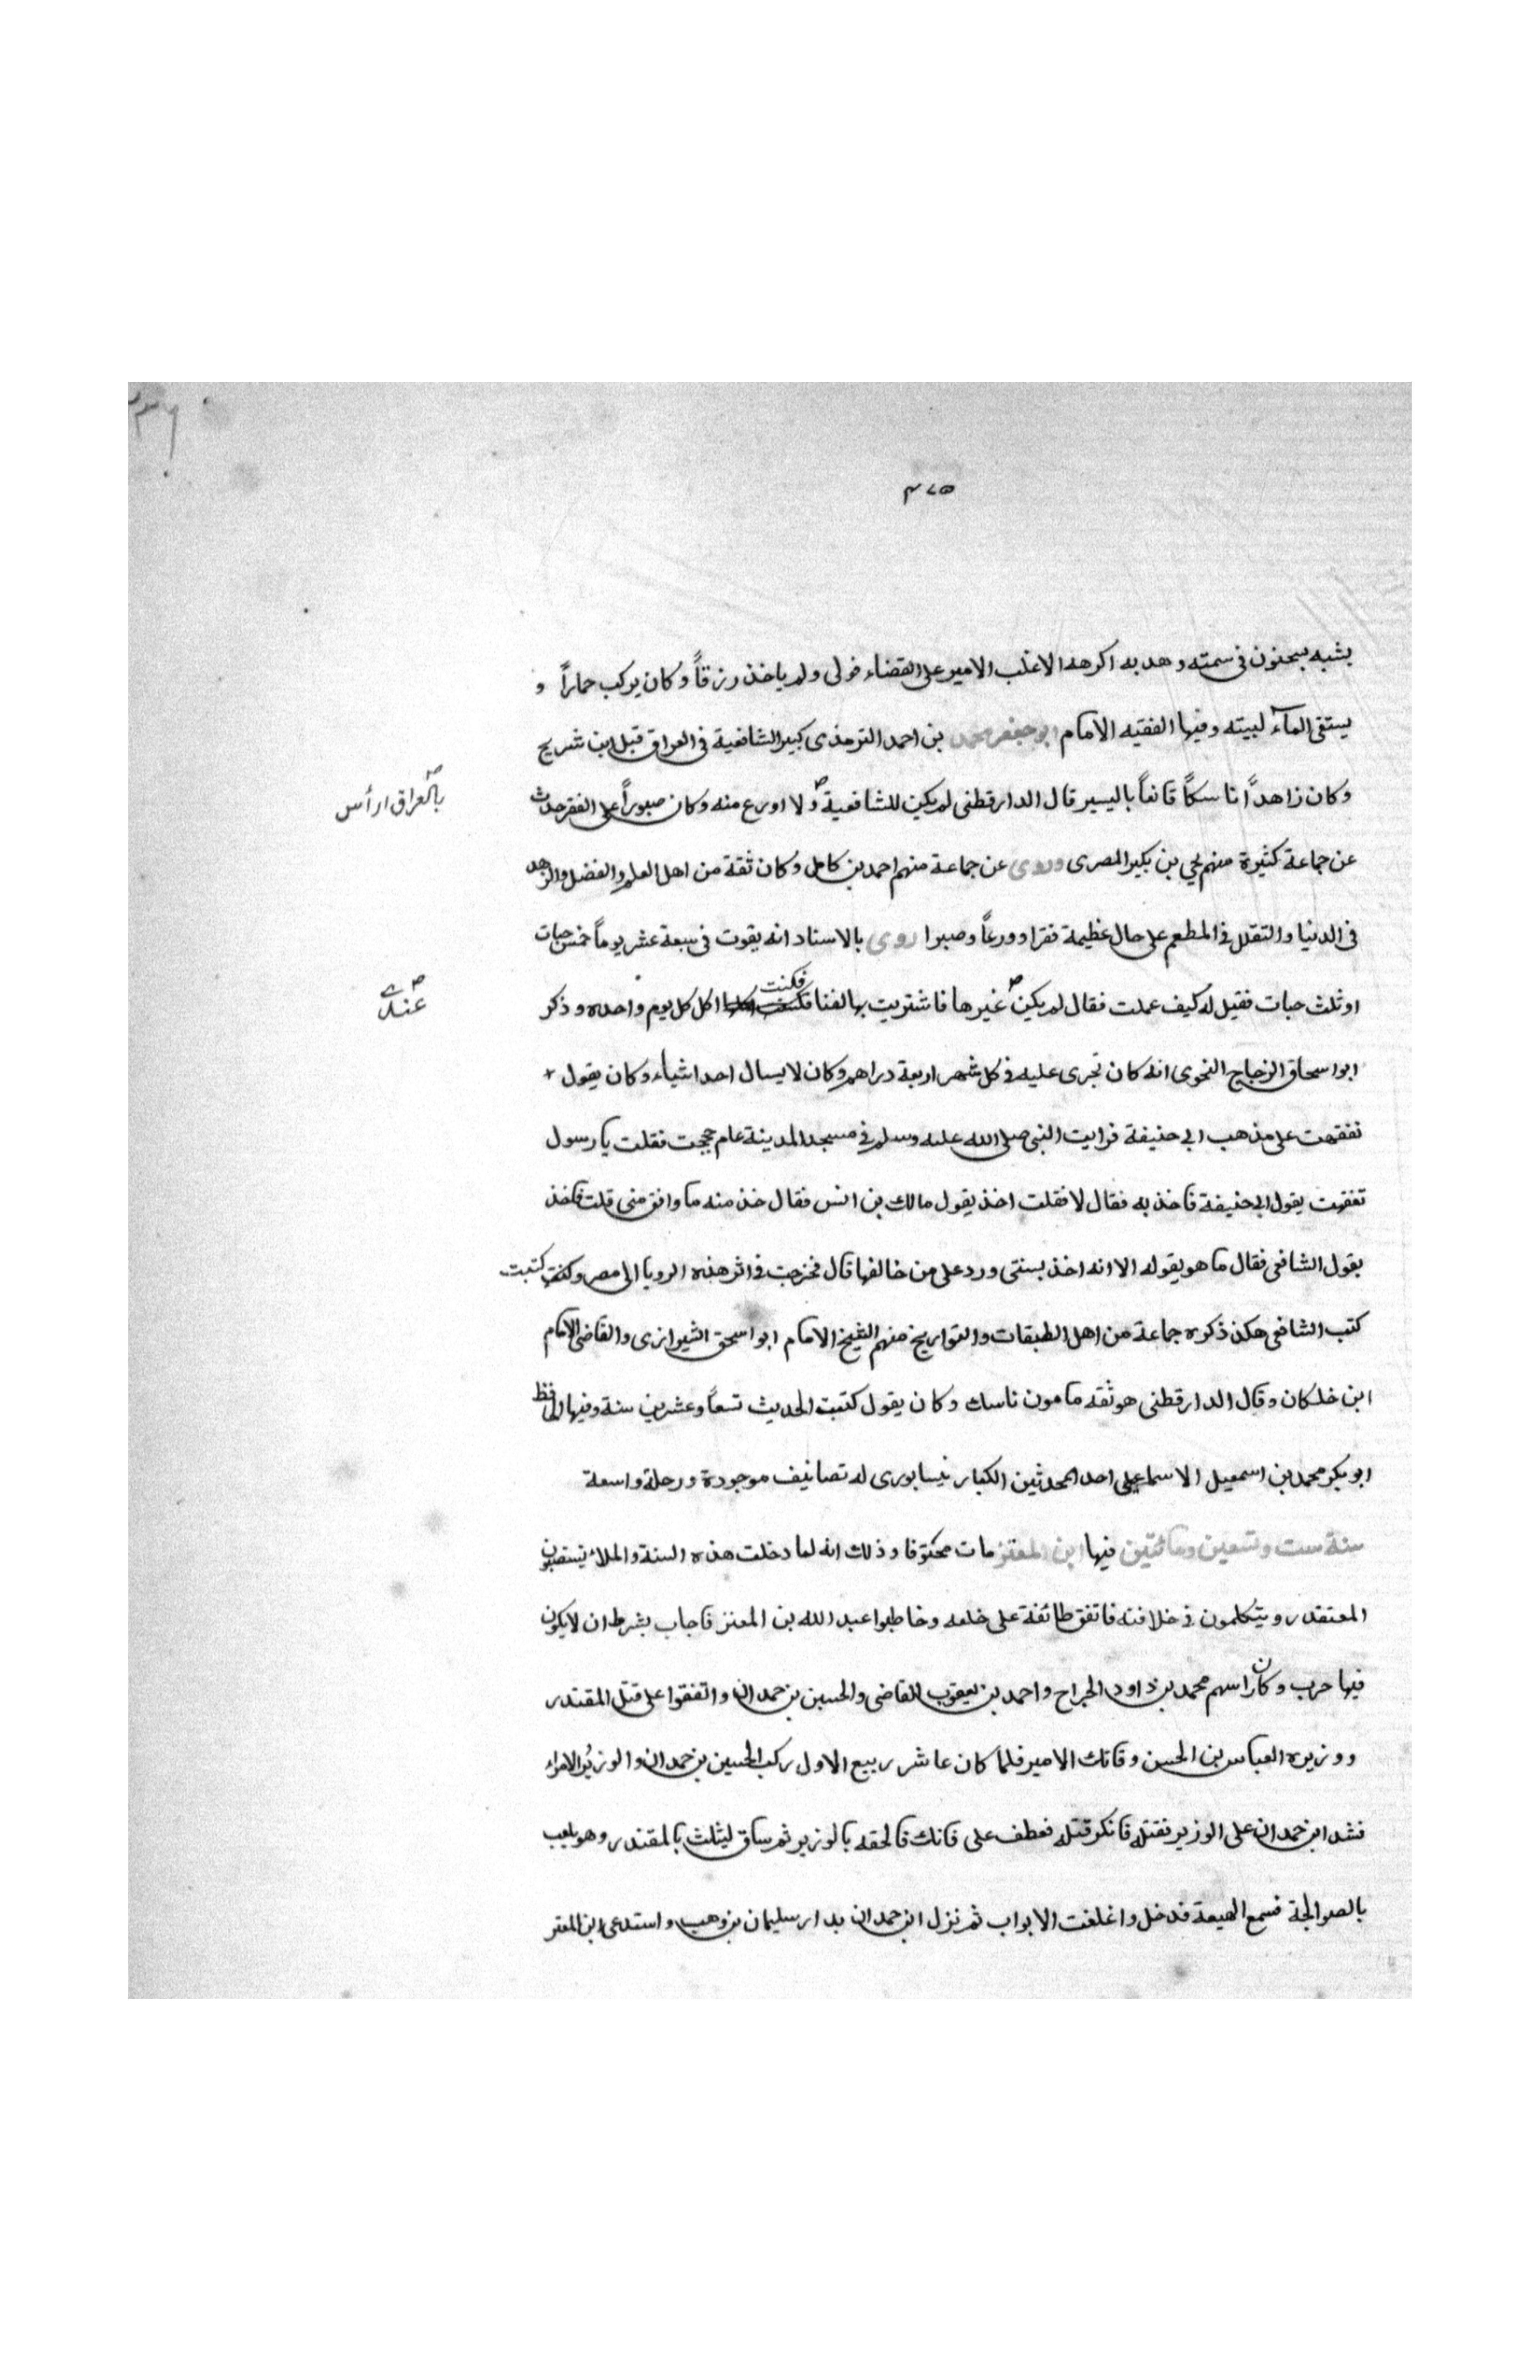 ٤٧٥
يشبه بسحنون في سمته وهديه اكرهه الاغلب الامير على القضاء فولى ولم ياخذ رزقاً وكان يركب حماراً و
يستقى المآء لبيته وفيها الفقيه الامام ابو جعفر محمد بن احمد الترمذى كبير الشافعية فى العراق قبل ابن شريح
وكان زاهداً ناسكاً قانعاً باليسير قال الدارقطنى لم يكن للشافعية ولا اورع منه وكان صبوراً على الفقر حدث
بالعراق ارأس
عن جماعة كثيرة منهم يحي بن بكير المصرى وروى عن جماعة منهم احمد بن كامل وكان ثقة من اهل العلم والفضل والزهد
فى الدنيا والتقلل فى المطعم على حال عظيمة فقرا وورعاً وصبرا روى بالاسناد انه يقوت فى سبعة عشر يوماً خمس حبات
او ثلث حبات فقيل له كيف عملت فقال لم يكن غيرها فاشتريت بها لفنا فكنت اكل كل يوم واحده وذكر
عندى
ابو اسحاق الزجاج النحوى انه كان تجرى عليه فى كل شهر اربعة دراهم وكان لا يسال احدا شياء وكان يقول
تفقهت على مذهب ابي حنيفة فرايت النبى صلى الله عليه وسلم فى مسجد المدينة عام حججت فقلت يا رسول
تفقهت بقول ابى حنيفة فاخذ به فقال لا فقلت اخذ بقول مالك بن انس فقال خذ منه ما وافق منى قلت فاخذ
بقول الشافعى فقال ما هو يقوله الا انه اخذ بسنتى ورد على من خالفها قال فخرجت فى اثر هذه الرويا الى مصر وكتبت
كتب الشافعى هكذ ذكره جماعة من اهل الطبقات والتواريخ منهم الشيخ الامام ابو اسحق الشيرازى والقاضى الامام
ابن خلكان وقال الدارقطنى هو ثقه مامون ناسك وكان يقول كتبت الحديث تسعاً وعشرين سنة وفيها الحافظ
ابو بكر محمد بن اسمعيل الاسماعيلى احد المحدثين الكبار نيسابورى له تصانيف موجودة ورحلة واسعة
سنة ست وتسعين ومائتين فيها ابن المعتز مات مخنوقا وذلك انه لما دخلت هذه السنة والملاء يستصبون
المعتقدر ويتكلمون فى خلافته فاتفق طائفة على خلعه وخاطبوا عبد الله بن المعتز فاجاب بشرط ان لا يكون
فيها حرب وكان راسهم محمد بن داود الجراح واحمد بن يعقوب القاضى والحسين بن حمدان واتفقوا على قتل المقتدر
ووزيره العباس بن الحسن وفاتك الامير فلما كان عاشر ربيع الاول ركب الحسين بن حمدان والوزير والامراء
فشد ابن حمدان على الوزير فقتله فانكر قتله فعطف على فاتك فالحقه بالوزير ثم ساق ليثلث بالمقتدر وهو يلعب
بالصوالجة فسمع الهيعة فدخل واغلقت الابواب ثم نزل ابن حمدان بدار سليمان بن وهب واستدعى ابن المعتز